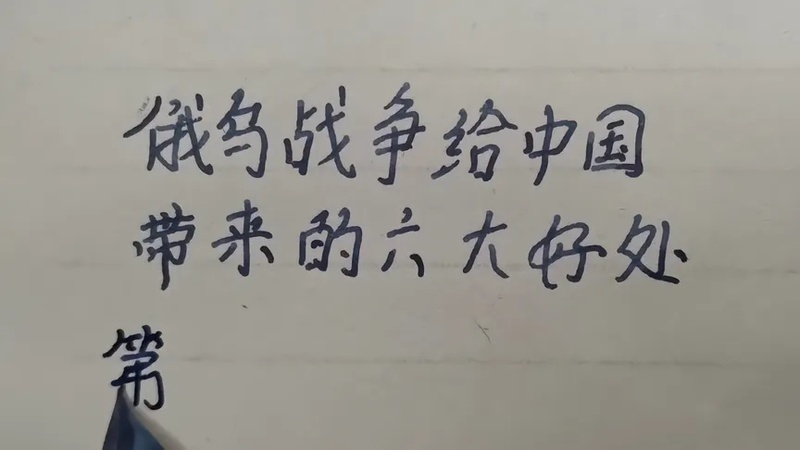 俄乌战争给中国
带来的六大好处
第